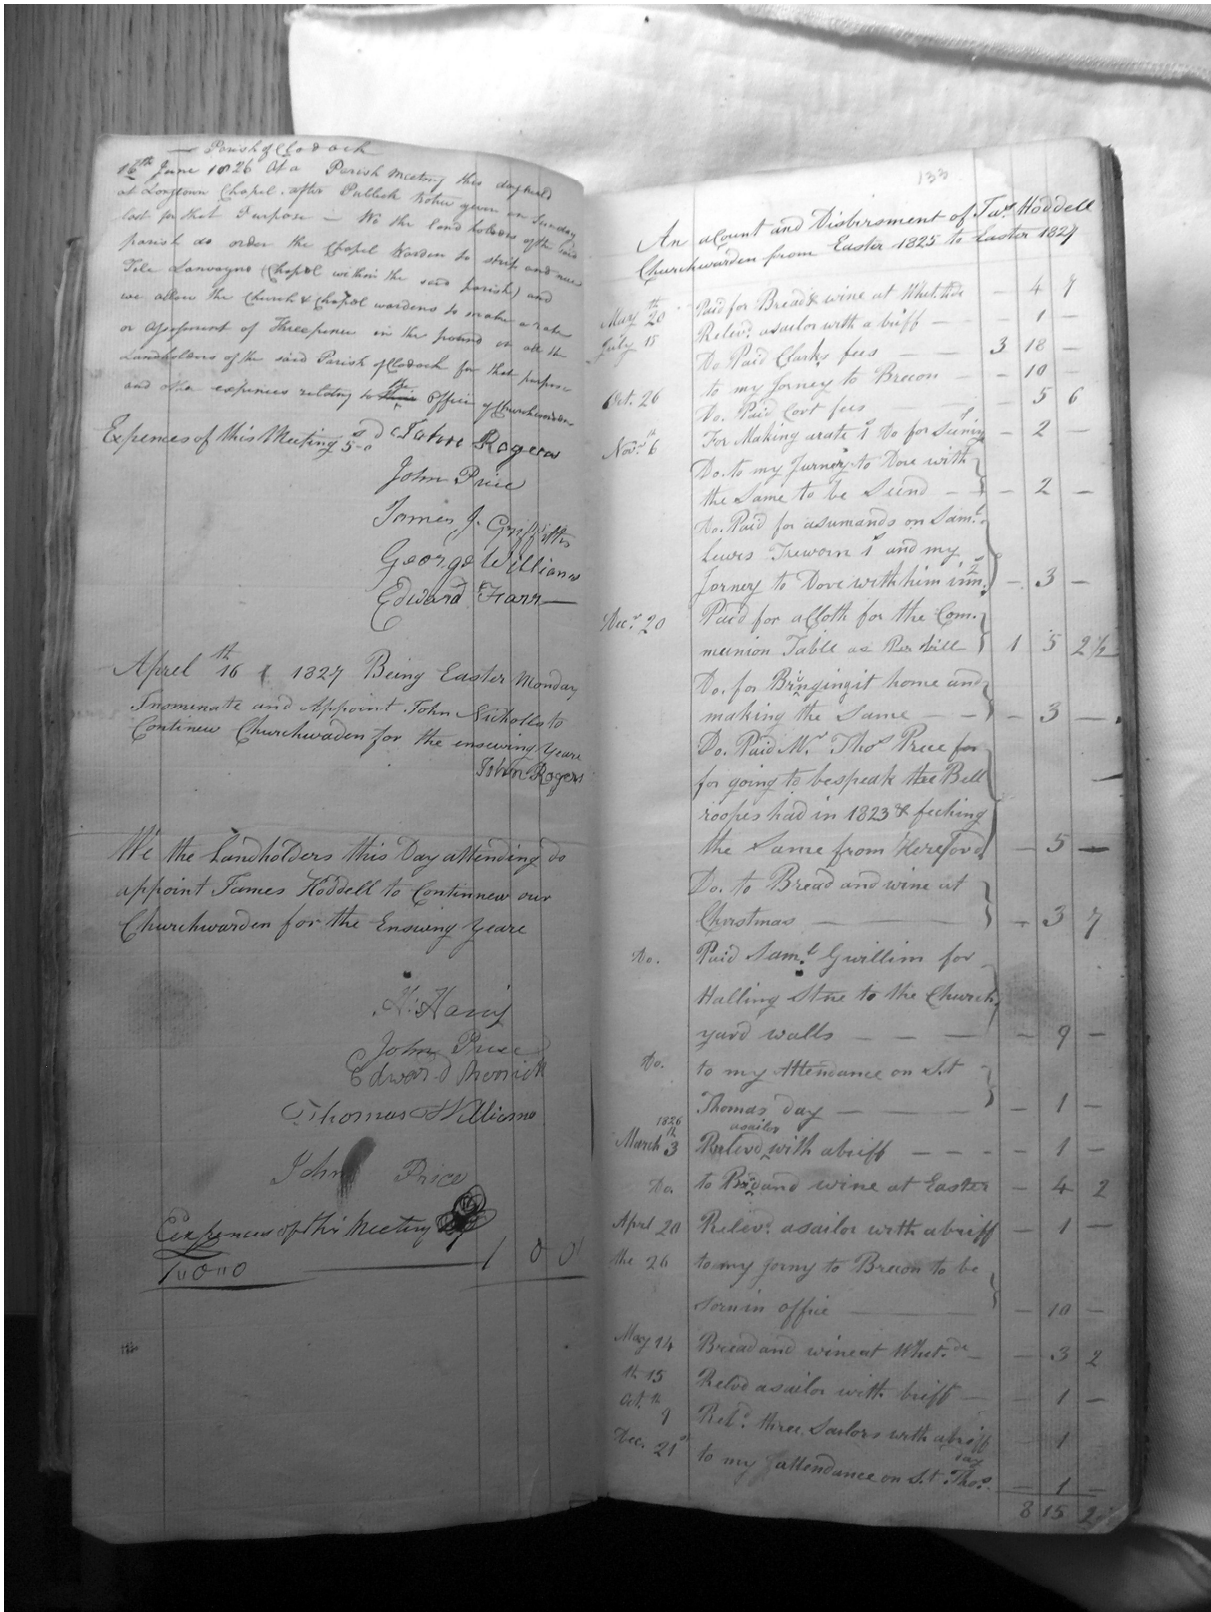 Parish of Clodoch
16th June 1826 At a Parish Meeting this day held
at Longtown Chapel after Publick Notice given on Sunday
last for that Purpose — We the land holders of the said
parish do order the Chapel Warden to strip and new
Tile Lanvayno (Chapel within the said parish) and
we allow the Church & Chapel wardens to make a rate
or assessment of Threepence in the pound on all the
Landholders of the said Parish of Clodoch for that purpose
and other expences relating to the Office of Churchwarden
Expences of this Meeting 5s-0d John Rogers
John Price
James J. Griffiths
George Williams
Edward Farr
Aprel 16th 1827 Being Easter Monday
I nomenate and Appoint John Nicholls to
Continew Churchwaden for the ensewing Yeare
John Rogers
We the Landholders this Day attending do
appoint James Hoddell to Continnew our
Churchwarden for the Ensewing Yeare
John Price
Edward Merrick
Thomas Williams
John Price
Expences of this Meeting
1"0"0 1 0 0
133
An acount and Disbirsment of Jas. Hoddell
Churchwarden from Easter 1825 to Easter 1827
May 20th Paid for Bread & wine at Whit.tide — 4 7
July 15 Reliev'd a sailor with a briff — 1 —
Do Paid Clarks fees 3 18 —
to my Jorney to Brecon — 10 —
Oct. 26 Do. Paid Cort fees — 5 6
Novr. 6th For Making a rate 1s Do for Sining 1s — 2 —
Do. to my Jurney to Dore with
the Same to be Siend — 2 —
Do. Paid for a sumands on Saml.
Lewis Treworn 1s and my
Jorney to Dore with him in 2s — 3 —
Decr. 20 Paid for a Cloth for the Com-
meunion Table as Per bill 1 5 2½
Do. for Bringing it home and
making the Same — 3 —
Do. Paid Mr. Thos Price for
for going to bespeak thee Bell
roopes had in 1823 & feching
the Same from Hereford — 5 —
Do. to Bread and wine at
Christmas — 3 7
Do. Paid Saml. Gwillim for
Halling Stne to the Church
yard walls — 9 —
Do. to my Attendance on S.t
Thomas day — 1 —
1826
March 3th Relevd a sailor with a briff — 1 —
Do. to Bred and wine at Easter — 4 2
April 20 Relevd. a sailor with a briff — 1 —
the 26 to my jorny to Brecon to be
Sorn in office — 10 —
May 14 Bread and wine at Whet.de — 3 2
th 15 Relvd a sailor with briff — 1 —
Oct. th 9 Relvd. three Sailors with a briff — 1
Dec. 21st to my attendance on S.t Thos. day — 1 —
8 15 2½